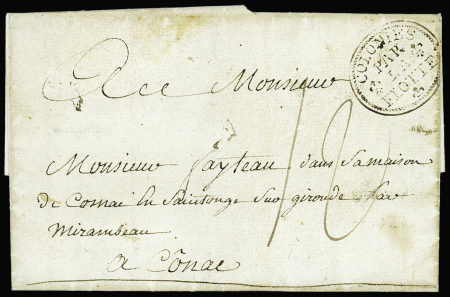 COLONIES
PAR
Monsieur
10
Monsieur Jayteau dans Sa maison
de Cosnac En Saintonge Sur gironde Par
Mirambeau
a Cônac